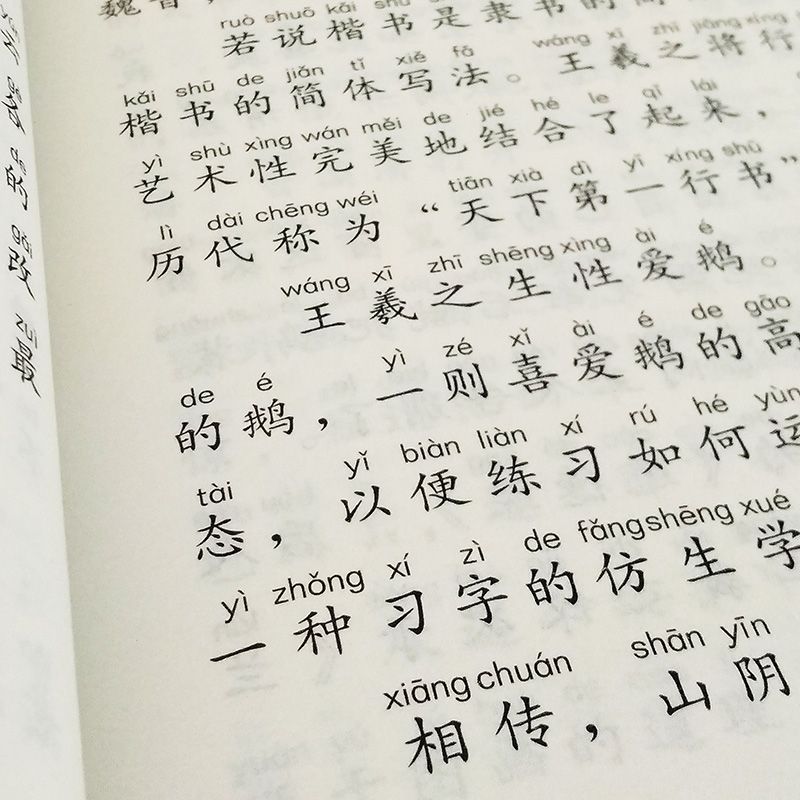 ruò shuō kǎi shū
若说楷书是隶书的简
kǎi shū de jiǎn tǐ xiě fǎ wáng xī zhī jiāng xíng
楷书的简体写法。王羲之将行
yì shù xìng wán měi de jié hé le qǐ lái
艺术性完美地结合了起来，
lì dài chēng wéi tiān xià dì yī xíng shū
历代称为“天下第一行书”
wáng xī zhī shēng xìng ài é
王羲之生性爱鹅。
de é yì zé xǐ ài é de gāo
的鹅，一则喜爱鹅的高
tài yǐ biàn liàn xí rú hé yùn
态，以便练习如何运
yì zhǒng xí zì de fǎng shēng xué
一种习字的仿生学
xiāng chuán shān yīn
相传，山阴
的改最